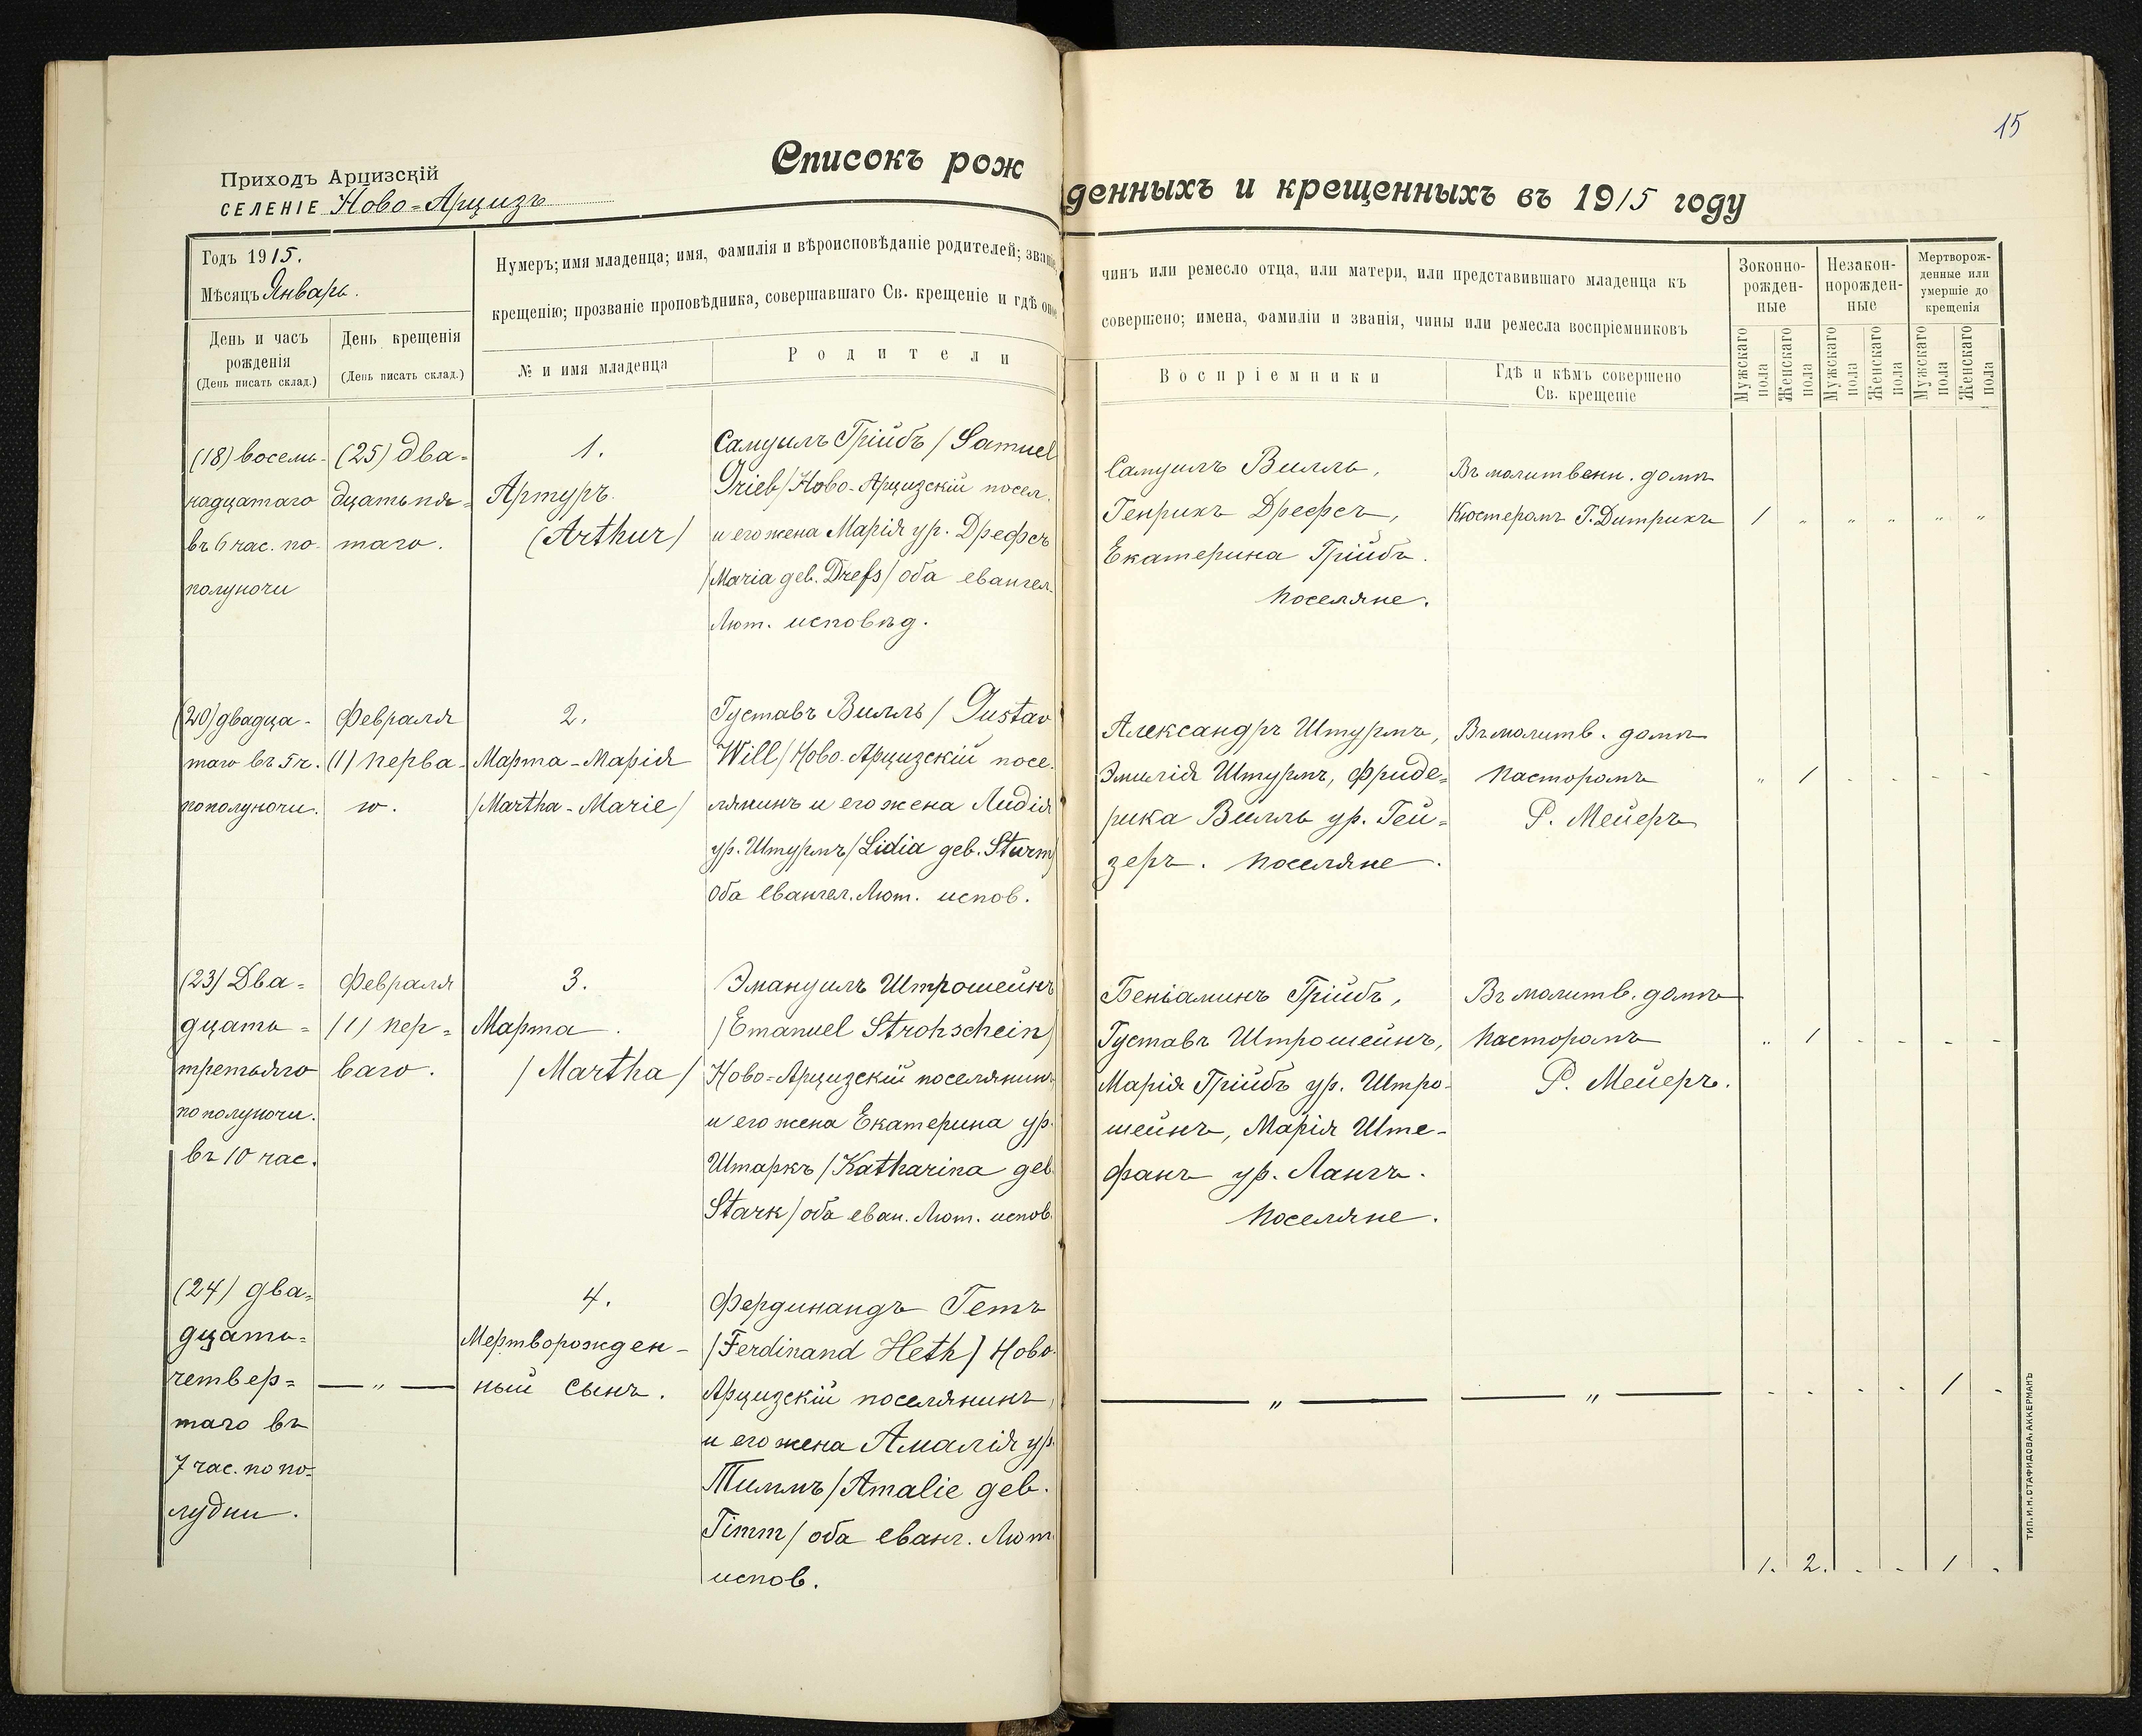 15
Приходъ Арцизскій
СЕЛЕНІЕ Ново=Арцизъ
Списокъ рож
денныхъ и крещенныхъ въ 1915 году
Годъ 1915.
Мѣсяцъ Январь.
День и часъ
рожденія
(День писать склад.)
День крещенія
(День писать склад.)
Нумеръ; имя младенца; имя, фамилія и вѣроисповѣданіе родителей; званіе,
крещенію; прозваніе проповѣдника, совершавшаго Св. крещеніе и гдѣ оное
№ и имя младенца
Родители
чинъ или ремесло отца, или матери, или представившаго младенца къ
совершено; имена, фамиліи и званія, чины или ремесла воспріемниковъ
Воспріемники
Гдѣ и кѣмъ совершено
Св. крещеніе
Зоконно-
рожден-
ные
Незакон-
норожден-
ные
Мертворож-
денные или
умершіе до
крещенія
Мужскаго
пола
Женскаго
пола
Мужскаго
пола
Женскаго
пола
Мужскаго
пола
Женскаго
пола
(18) восемь-
надцатаго
въ 6 час. по-
полуночи
(25) два=
дцать пя=
таго.
1.
Артуръ
(Arthur)
Самуилъ Грійбъ / Samuel
Grieb / Ново-Арцизскій посел.
и его жена Марія ур. Дрефсъ
/ Maria geb. Drefs / оба евангел.
Лют. исповѣд.
Самуилъ Вилль,
Генрихъ Дрефсъ,
Екатерина Грійбъ.
Поселяне.
Въ молитвенн. домѣ
Кюстеромъ Г. Дитрихъ
1 „ „ „ „ „
(20) двадца-
таго въ 5 ч.
пополуночи.
Февраля
(1) перва-
го.
2.
Марта-Марія
/ Martha-Marie /
Густавъ Вилль / Gustav
Will / Ново-Арцизскій посе-
лянинъ и его жена Лидія
ур. Штурмъ / Lidia geb. Sturm /
оба евангел. Лют. испов.
Александръ Штурмъ,
Эмилія Штурмъ, Фриде=
рика Вилль ур. Гей=
зеръ. Поселяне.
Въ молитв. домѣ
Пасторомъ
Р. Мейеръ
„ 1 - - - -
(23) Два=
дцать=
третьяго
пополуночи.
въ 10 час.
Февраля
/1/ пер=
ваго.
3.
Марта.
/ Martha /
Эмануилъ Штрошейнъ
/ Emanuel Strohschein /
Ново=Арцизскій поселянинъ
и его жена Екатерина ур.
Штаркъ / Katharina geb.
Stark / оба еван. Лют. испов.
Беніаминъ Грійбъ,
Густавъ Штрошейнъ,
Марія Грійбъ ур. Штро-
шейнъ, Марія Ште-
фанъ ур. Лангъ.
Поселяне.
Въ молитв. домѣ
Пасторомъ
Р. Мейеръ.
„ 1 - - - -
(24) два=
дцать=
четвер=
таго въ
7 час. по по=
лудни.
— „ —
4.
Мертворожден-
ный сынъ.
Фердинандъ Гетъ
/ Ferdinand Heth / Ново-
Арцизскій поселянинъ,
и его жена Амалія ур.
Тиммъ / Amalie geb.
Timm / оба еванг. Лют.
испов.
— „ —
— „ —
- - - - 1 -
1. 2. - - 1 -
ТИП. И. Н. СТАФИДОВА, АККЕРМАНЪ